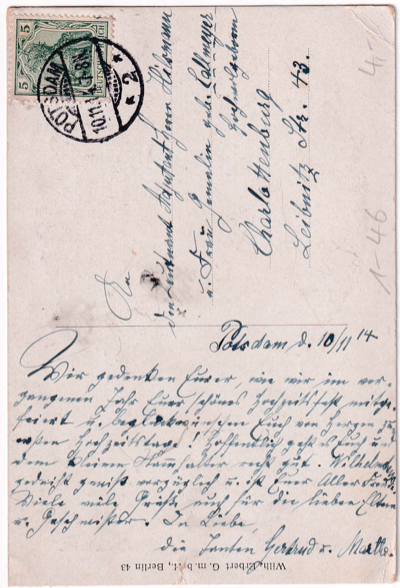 5
5
DEUTSCHES REICH
POTSDAM
10.11.14
* 2 *
An
den Leutnant Adjutant Herrn
u. Frau Gemahlin geb. Callmeyer
Hochwohlgeboren
Charlottenburg
Leibnitz Str. 43.
4,-
1-46
Potsdam d. 10/11 14
Wir gedenken Eurer, wie wir im ver-
gangenen Jahr Euer schönes Hochzeitsfest mitge-
feiert u. beglückwünschen Euch von Herzen zum
ersten Hochzeitstage! Hoffentlich geht es Euch und
dem kleinen Stammhalter recht gut.
gedeiht gewiß vorzüglich u. ist Euer Aller Freude.
Viele Grüße auch für die lieben Eltern
u. Geschwister. In Liebe
die Tanten Gertrud u. Martha.
Wilh. G. m. b. H., Berlin 43